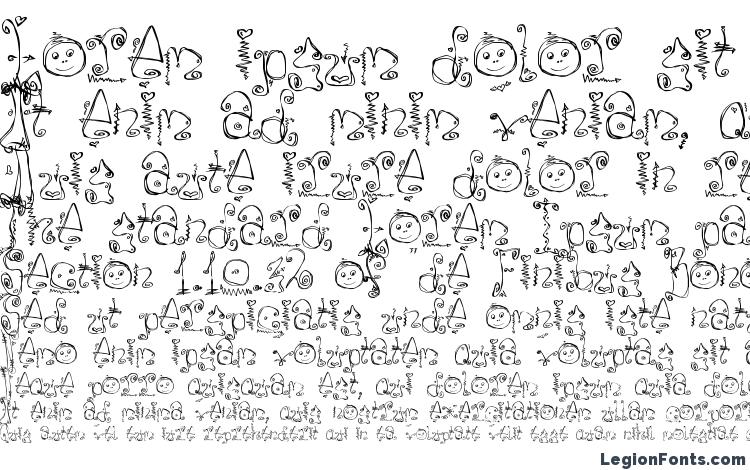 Lorem Ipsum dolor sit
Ut enim ad minim veniam, q
Duis aute irure dolor in re
The standard Lorem Ipsum pa
Section 1.10.32 of de Finibus Bon
Sed ut perspiciatis unde omnis iste na
Nemo enim ipsam voluptatem quia voluptas
Neque porro quisquam est, qui dolorem ipsum quia dolor
Ut enim ad minima veniam, quis nostrum exercitationem ullam corpor
Quis autem vel eum iure reprehenderit qui in ea voluptate velit esse quam nihil
LegionFonts.com